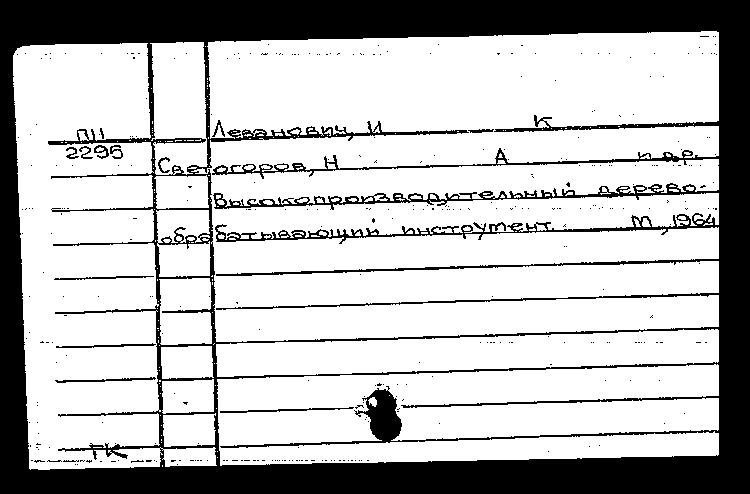 ПП Леванович, И К
2295 Светогоров, Н А и др.
Высокопроизводительный дерево-
обрабатывающий инструмент М, 1964
ГК